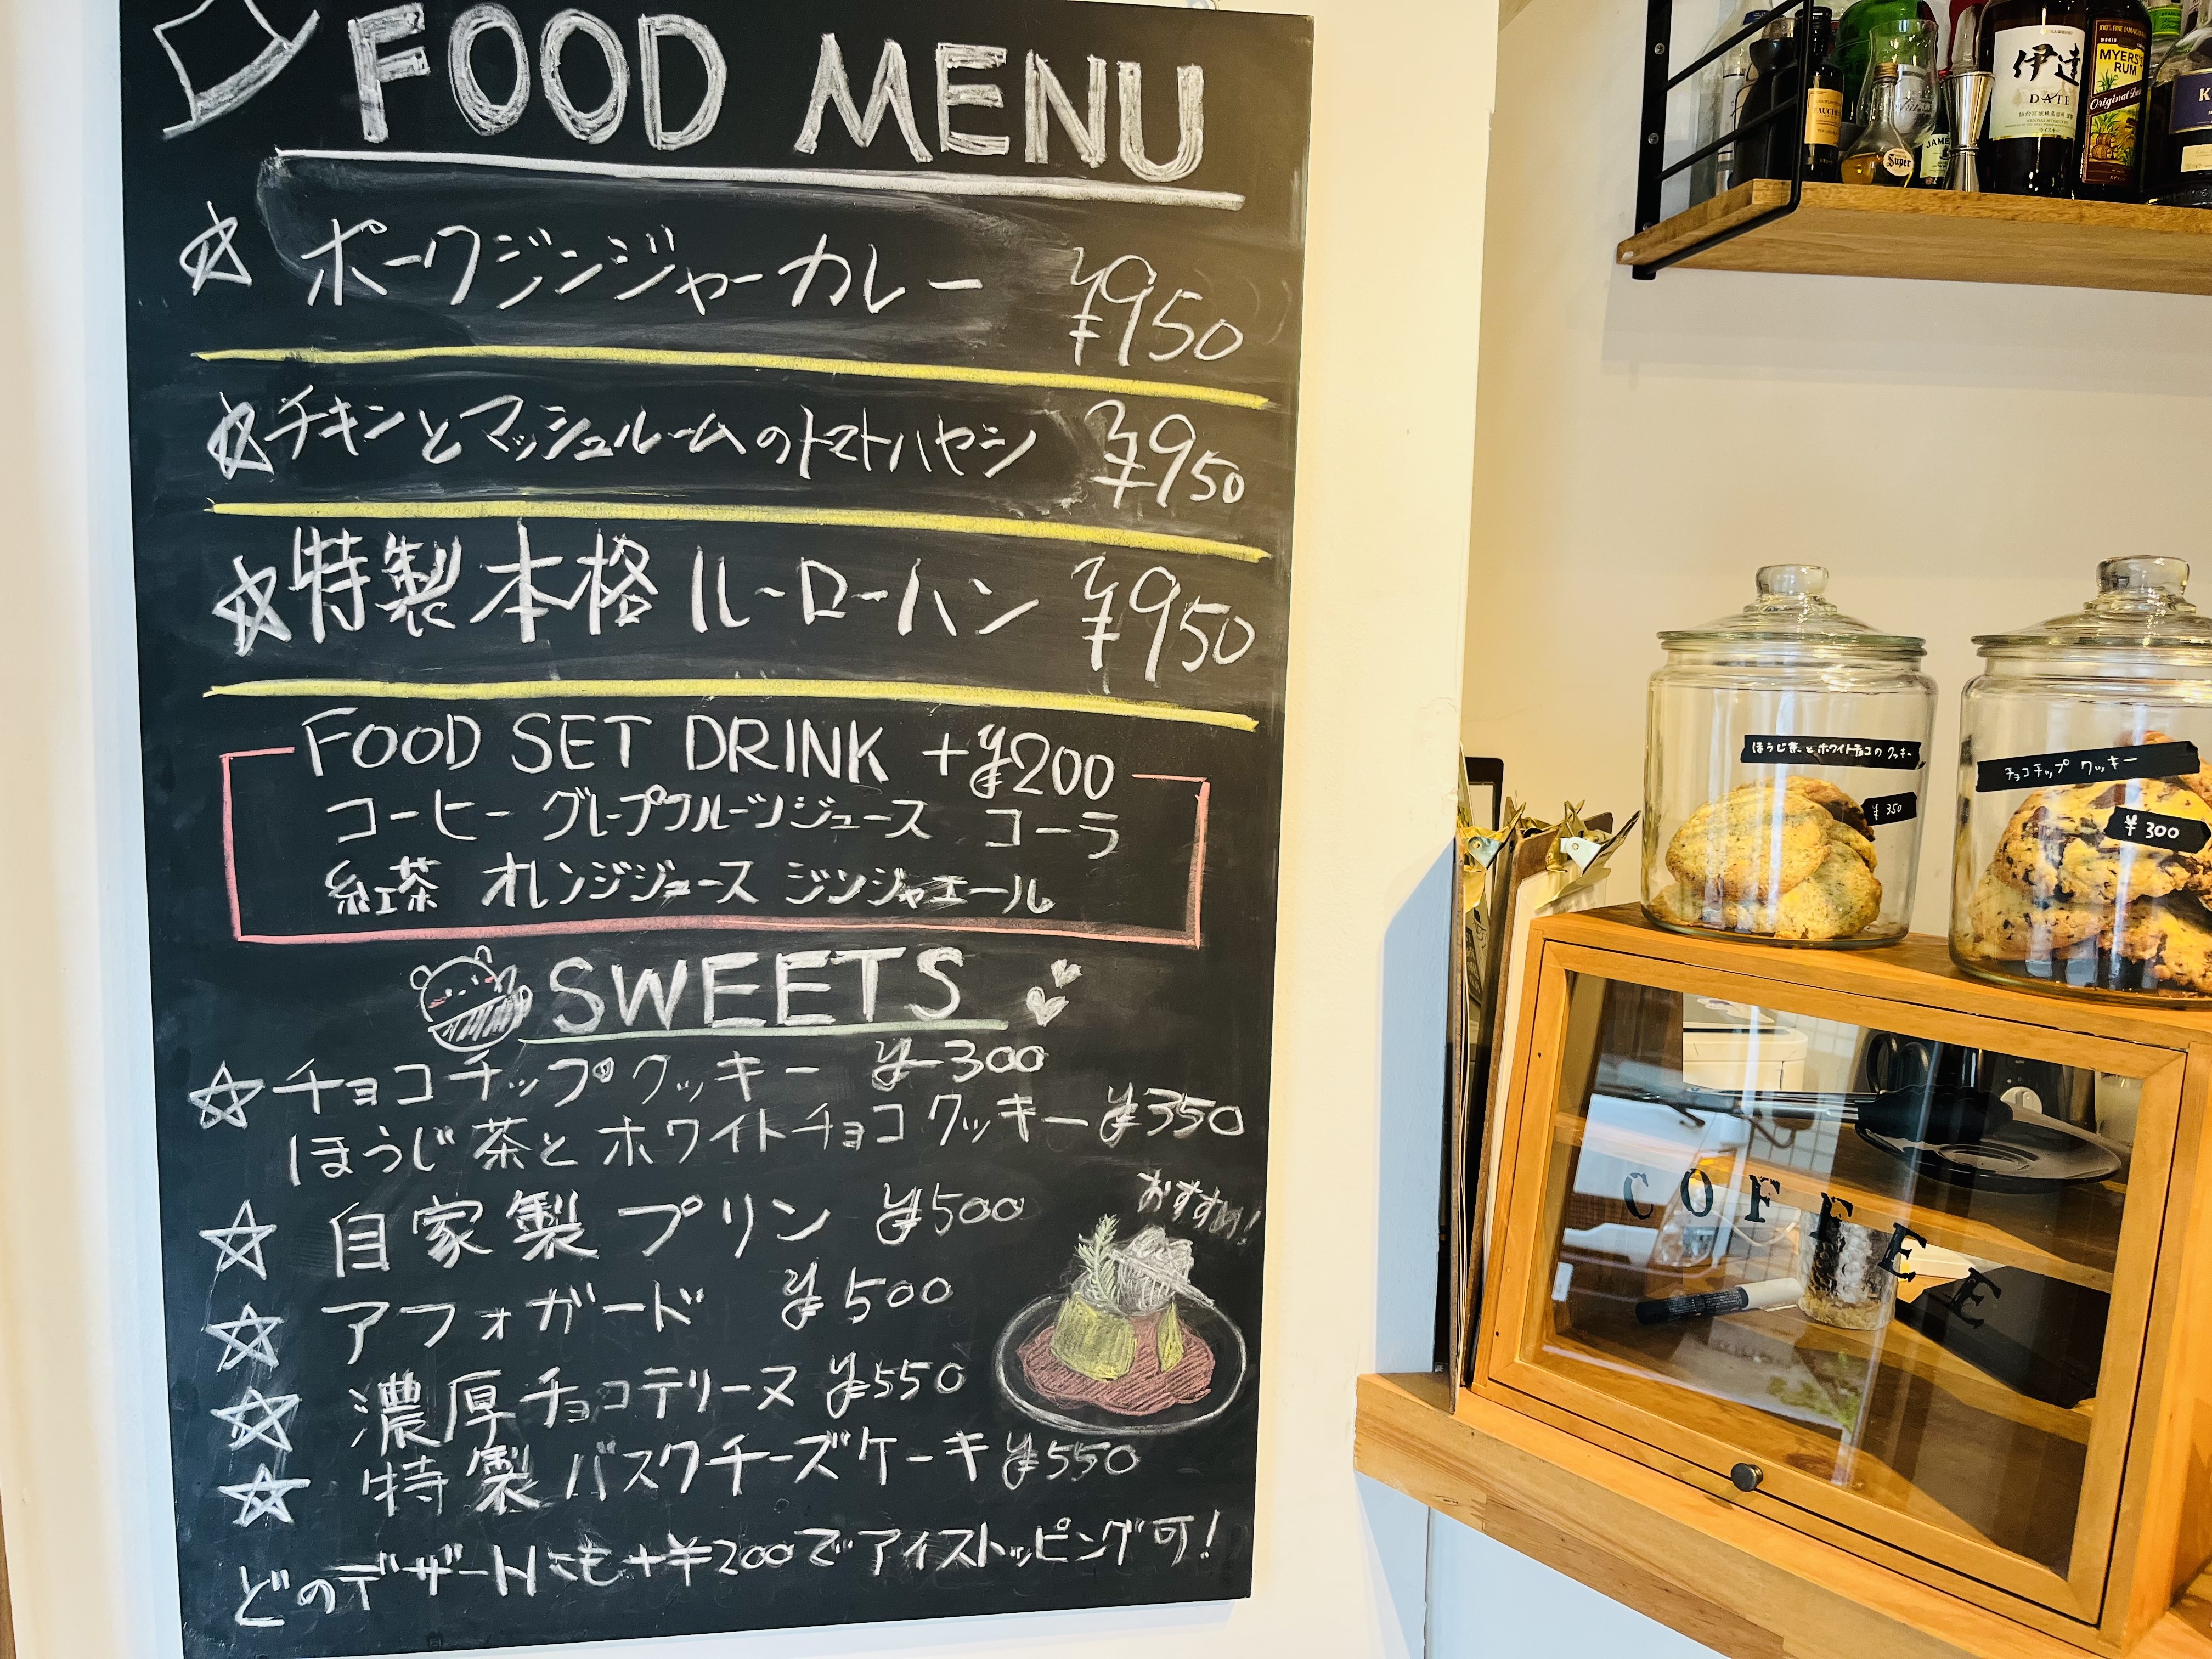 FOOD MENU
ポークジンジャーカレー ¥950
チキンとマッシュルームのトマトハヤシ ¥950
特製本格ルーローハン ¥950
FOOD SET DRINK +¥200
コーヒー グレープフルーツジュース コーラ
紅茶 オレンジジュース ジンジャエール
SWEETS
チョコチップクッキー ¥300
ほうじ茶とホワイトチョコクッキー ¥350
自家製プリン ¥500
おすすめ!
アフォガード ¥500
濃厚チョコテリーヌ ¥550
特製バスクチーズケーキ ¥550
どのデザートにも+¥200でアイストッピング可!
伊達
DATE
100% FINE JAMAICAN
MYERS'S
RUM
Original Dark
Super
JAME
ほうじ茶とホワイトチョコのクッキー
¥350
チョコチップクッキー
¥300
COFFEE